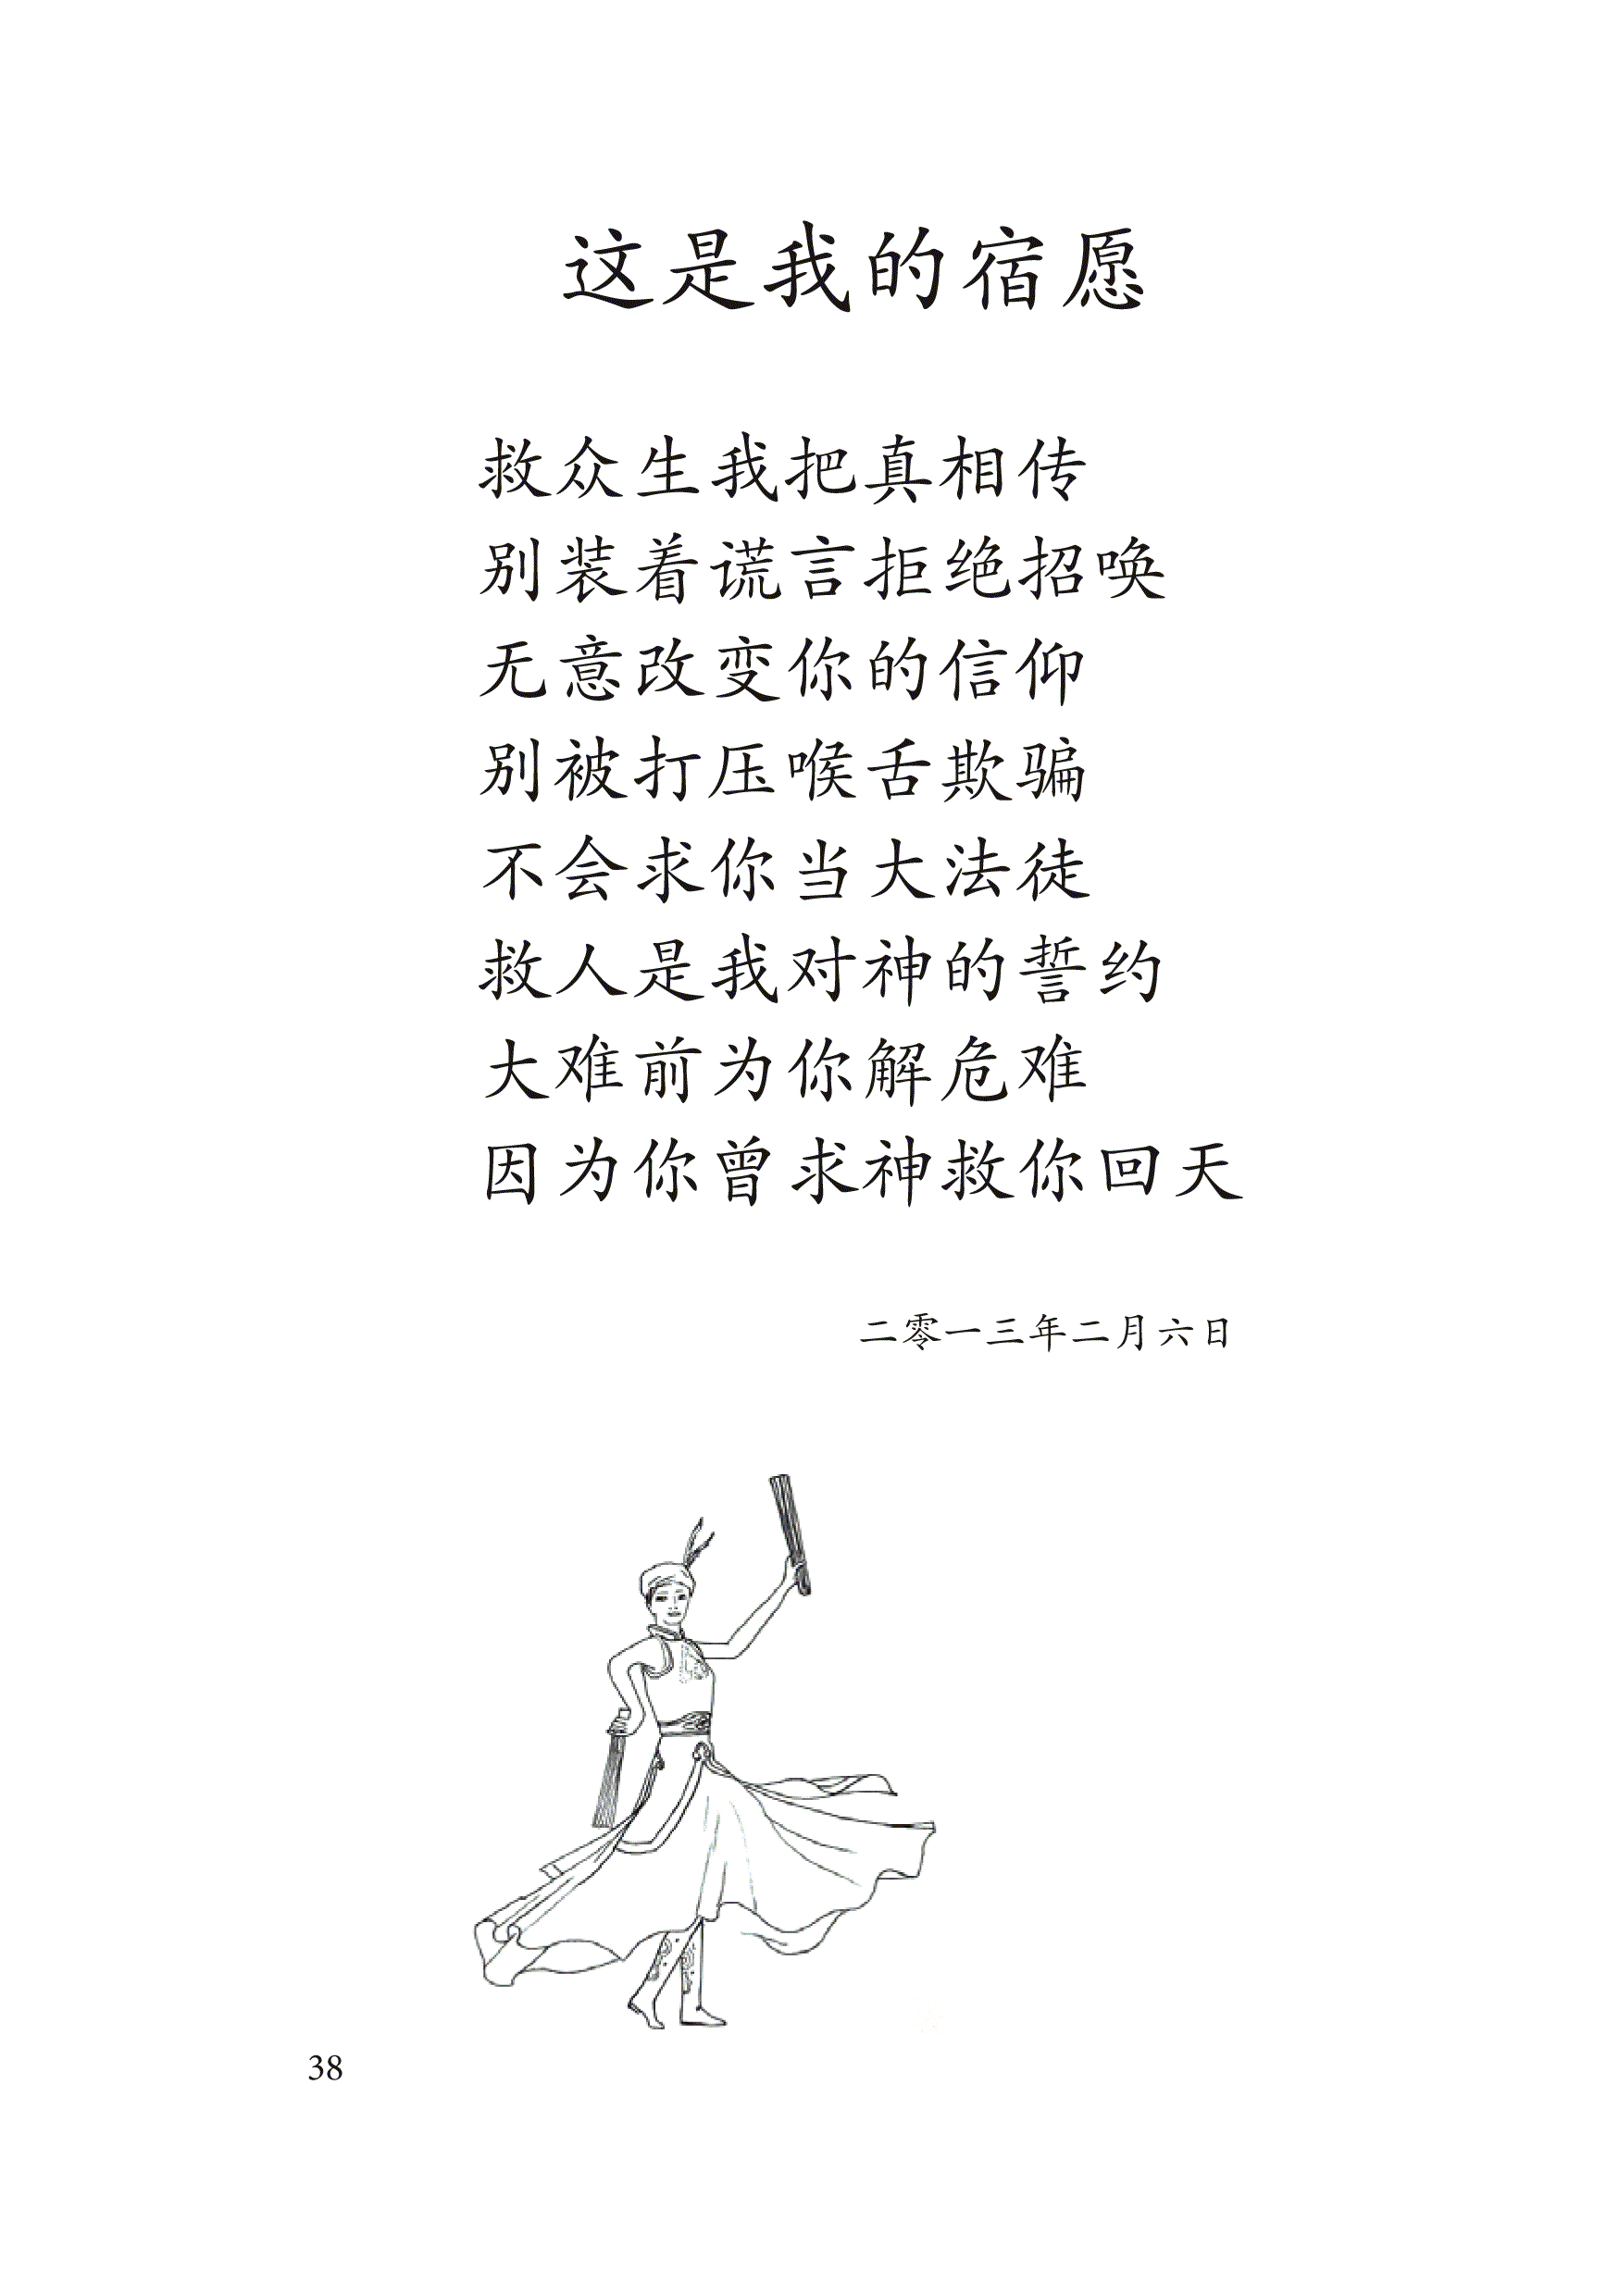 这是我的宿愿
救众生我把真相传
别装着谎言拒绝招唤
无意改变你的信仰
别被打压喉舌欺骗
不会求你当大法徒
救人是我对神的誓约
大难前为你解危难
因为你曾求神救你回天
二零一三年二月六日
38